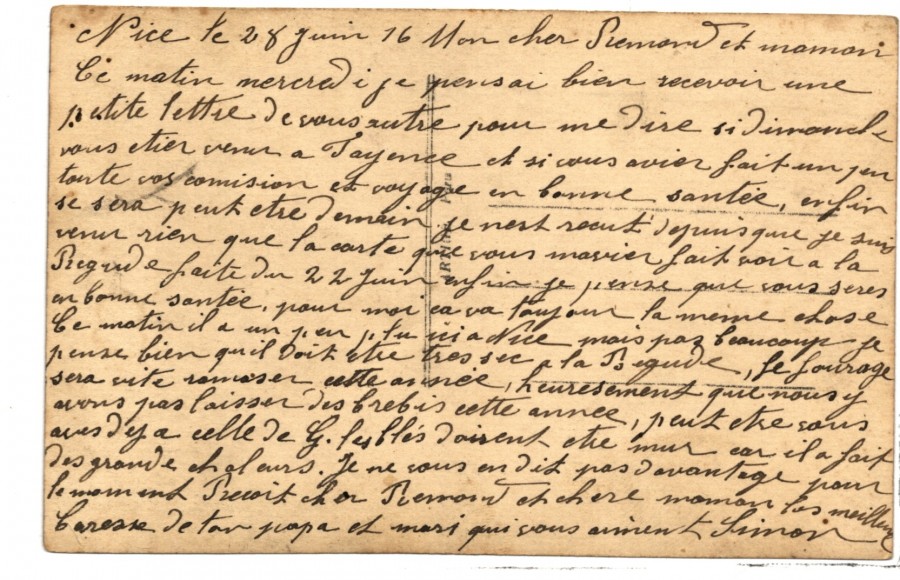 Nice le 28 Juin 16 Mon cher Remond et maman
Ce matin mercredi je pensai bien recevoir une
petite lettre de vous autre pour me dire si dimanche
vous etier venu a Fayence et si vous avier fait un peu
toute vos comision et voyage en bonne santée, enfin
se sera peut etre demain je nest recut depuis que je suis
venu rien que la carte que vous mavier fait voir a la
Begude faite du 22 Juin enfin je pense que vous seres
en bonne santée, pour moi ca va toujour la meme chose
Ce matin il a un peu plu ici a Nice mais pas beaucoup je
pense bien quil doit etre tres sec a la Begude, le fourage
sera vite ramaser cette année, heuresement que nous y
avons pas laisser des brebis cette année, peut etre vous
aves deja celle de G. les blés doivent etre mur car il a fait
des grande chaleurs. Je ne vous en dit pas davantage pour
le moment Recoit cher Remond et chere maman les meilleur
Caresse de ton papa et mari qui vous aiment Simon